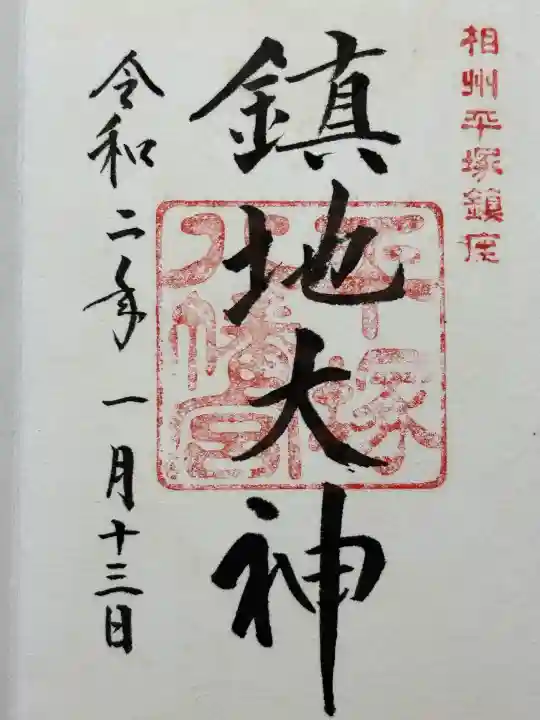 相州平塚鎮座
鎮地大神
平塚
八幡宮
令和二年一月十三日